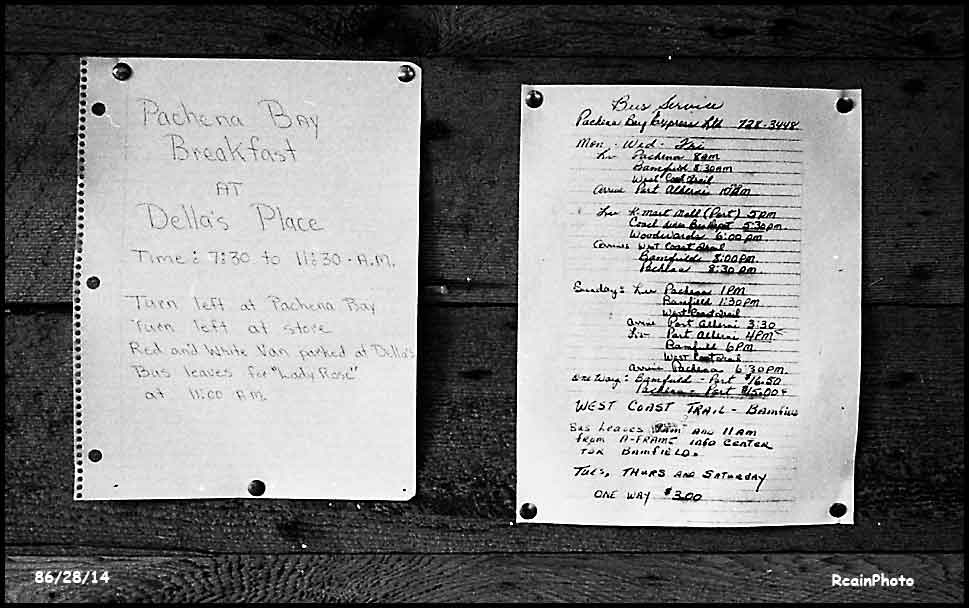 Pachena Bay
Breakfast
AT
Della's Place
Time: 7:30 to 11:30 A.M.
Turn left at Pachena Bay
Turn left at store
Red and White Van parked at Della's
Bus leaves for "Lady Rose"
at 11:00 A.M.
Bus Service
Pachena Bay Express Ltd 728-3448
Mon. Wed. Fri
Lv Pachena 8am
Bamfield 8:30am
West Coast Trail
arrive Port Alberni
Lv K.Mart Mall (Port) 5pm
Coach Bus Depot 5:30pm
Woodwards 6:00pm
West Coast Trail
Bamfield 8:00pm
Pachena 8:30pm
Sundays: Lv Pachena 1PM
Bamfield 1:30PM
West Coast Trail
arrive Port Alberni 3:30
Lv Port Alberni 4PM
Bamfield 6PM
West Coast Trail
arrive Pachena 6:30pm
One Way: Bamfield - Port $16.50
Pachena - Port $15.00
WEST COAST TRAIL - Bamfield
BUS LEAVES AND 11AM
FROM A-FRAME INFO CENTER
FOR BAMFIELD.
TUES, THURS AND SATURDAY
ONE WAY $3.00
86/28/14
RcainPhoto